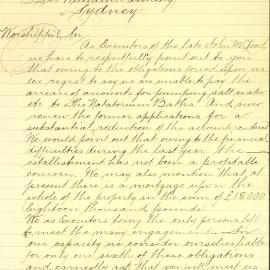 Sydney
Worshipful Sir
As Executors of the late John McLeod
we have to respectfully point out to you
that owing to the obligations forced upon us
we regret to say we are unable to pay the
arrears of account for pumping salt water
etc to the Natatorium Baths. And now
renew the former applications for a
substantial reduction of the account rendered
We would point out that owing to the financial
difficulties during the last year the
establishment has not been a profitable
concern. We may also mention that at
present there is a mortgage upon the
whole of the property in the sum of £18,000
Eighteen thousand pounds.
We as Executors being the only persons left
to meet the many engagements. In
our capacity we consider ourselves liable
for only one sixth of these obligations
and earnestly ask that you will meet us